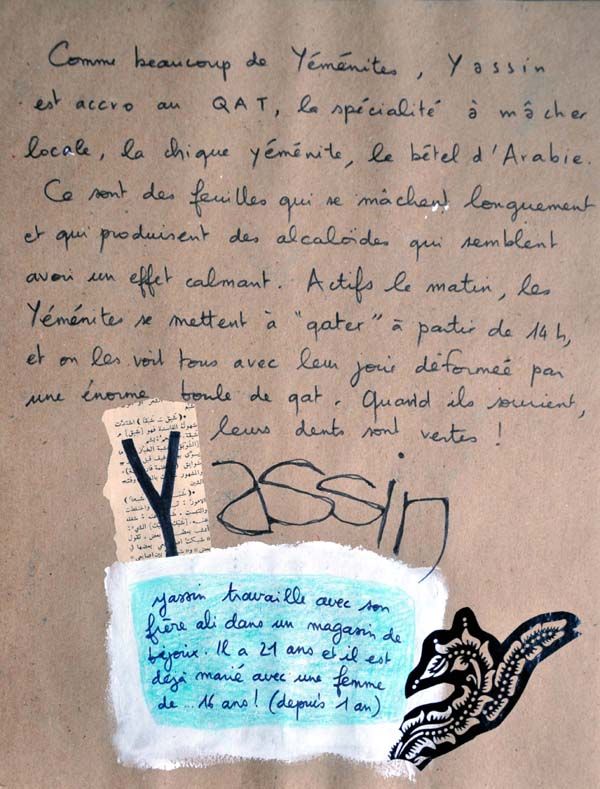 Comme beaucoup de Yéménites, Yassin
est accro au QAT, la spécialité à mâcher
locale, la chique yéménite, le bétel d'Arabie.
Ce sont des feuilles qui se mâchent longuement
et qui produisent des alcaloïdes qui semblent
avoir un effet calmant. Actifs le matin, les
Yéménites se mettent à "qater" à partir de 14h,
et on les voit tous avec leur joue déformeé par
une énorme boule de qat. Quand ils sourient,
leurs dents sont vertes !
Yassin
yassin travaille avec son
frère ali dans un magasin de
bijoux. Il a 21 ans et il est
déjà marié avec une femme
de ... 16 ans ! (depuis 1 an)